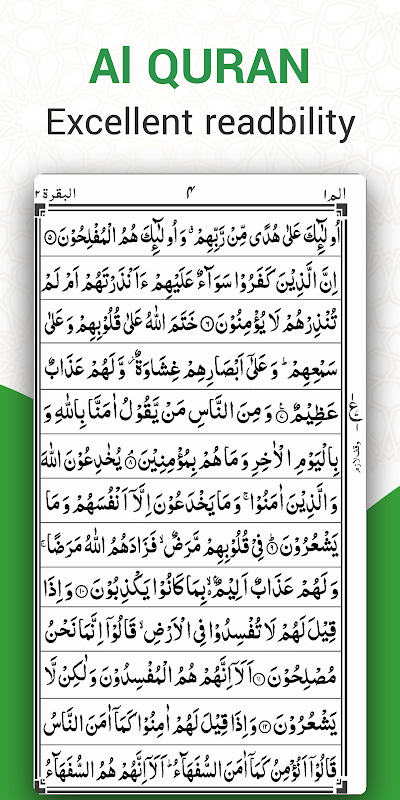 Al QURAN
Excellent readbility
البقرة ٢ ٤ الم ١
اُولٰٓئِكَ عَلٰى هُدًى مِّنْ رَّبِّهِمْ ۗ وَاُولٰٓئِكَ هُمُ الْمُفْلِحُوْنَ ۝٥
اِنَّ الَّذِيْنَ كَفَرُوْا سَوَآءٌ عَلَيْهِمْ ءَاَنْذَرْتَهُمْ اَمْ لَمْ
تُنْذِرْهُمْ لَا يُؤْمِنُوْنَ ۝٦ خَتَمَ اللّٰهُ عَلٰى قُلُوْبِهِمْ وَعَلٰى
سَمْعِهِمْ ؕ وَعَلٰٓى اَبْصَارِهِمْ غِشَاوَةٌ ؗ وَّلَهُمْ عَذَابٌ
عَظِيْمٌ ۝٧ وَمِنَ النَّاسِ مَنْ يَّقُوْلُ اٰمَنَّا بِاللّٰهِ وَ
ع
بِالْيَوْمِ الْاٰخِرِ وَمَا هُمْ بِمُؤْمِنِيْنَ ۝٨ يُخٰدِعُوْنَ اللّٰهَ
وقف لازم
وَالَّذِيْنَ اٰمَنُوْا ۚ وَمَا يَخْدَعُوْنَ اِلَّآ اَنْفُسَهُمْ وَمَا
يَشْعُرُوْنَ ۝٩ فِيْ قُلُوْبِهِمْ مَّرَضٌ ۙ فَزَادَهُمُ اللّٰهُ مَرَضًا ۚ
وَلَهُمْ عَذَابٌ اَلِيْمٌ ۢ ۙ بِمَا كَانُوْا يَكْذِبُوْنَ ۝١٠ وَاِذَا
قِيْلَ لَهُمْ لَا تُفْسِدُوْا فِي الْاَرْضِ ۙ قَالُوْٓا اِنَّمَا نَحْنُ
مُصْلِحُوْنَ ۝١١ اَلَآ اِنَّهُمْ هُمُ الْمُفْسِدُوْنَ وَلٰكِنْ لَّا
يَشْعُرُوْنَ ۝١٢ وَاِذَا قِيْلَ لَهُمْ اٰمِنُوْا كَمَآ اٰمَنَ النَّاسُ
قَالُوْٓا اَنُؤْمِنُ كَمَآ اٰمَنَ السُّفَهَآءُ ؕ اَلَآ اِنَّهُمْ هُمُ السُّفَهَآءُ